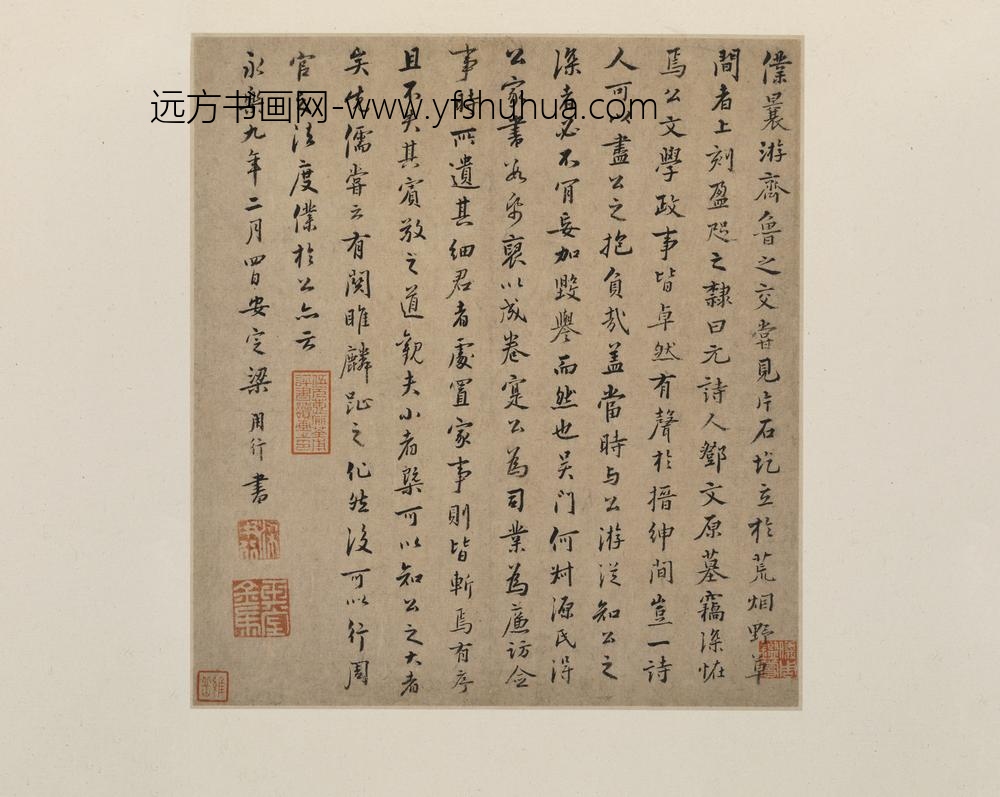 僕曩游齊魯之交嘗見片石圪立於荒烟野草
間者上刻盈咫之隸曰元詩人鄧文原墓竊深怪
焉公文學政事皆卓然有聲於搢紳間豈一詩
人可盡公之抱負哉蓋當時与公游從知公之
深者必不肎妄加毀譽而然也吴门何尌源氏得
公家書若干裒以成卷寔公為司業為廉訪僉
事時所遺其細君者處置家事則皆斬焉有序
且不失其賓敬之道觀夫小者槩可以知公之大者
矣先儒嘗云有関雎麟趾之化然後可以行周
官法度僕於公亦云
永樂九年二月四日安定梁用行書
远方书画网-www.yfshuhua.com